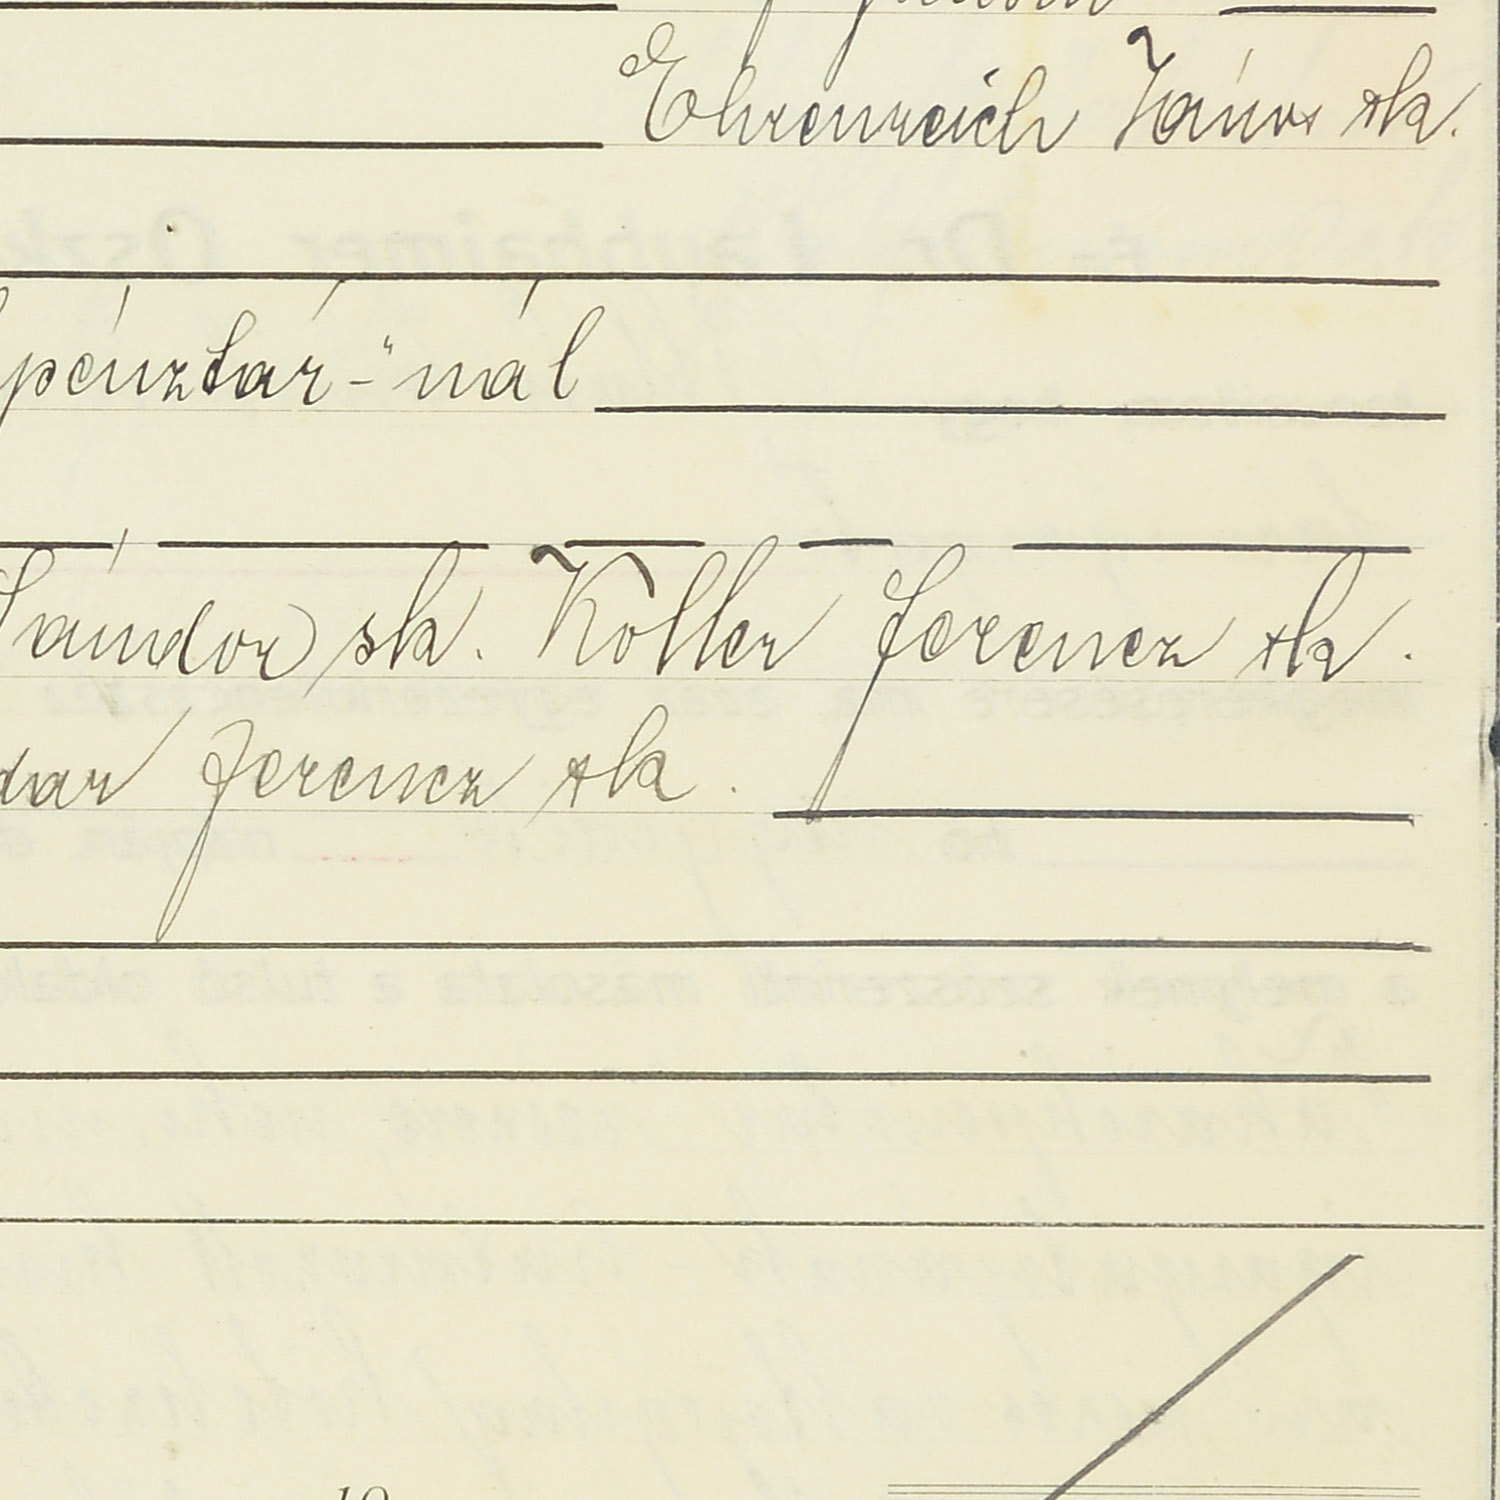 Ehrenreich János sk.
pénztár-"nál
Sándor sk. Koller Ferencz sk.
Ferencz sk.